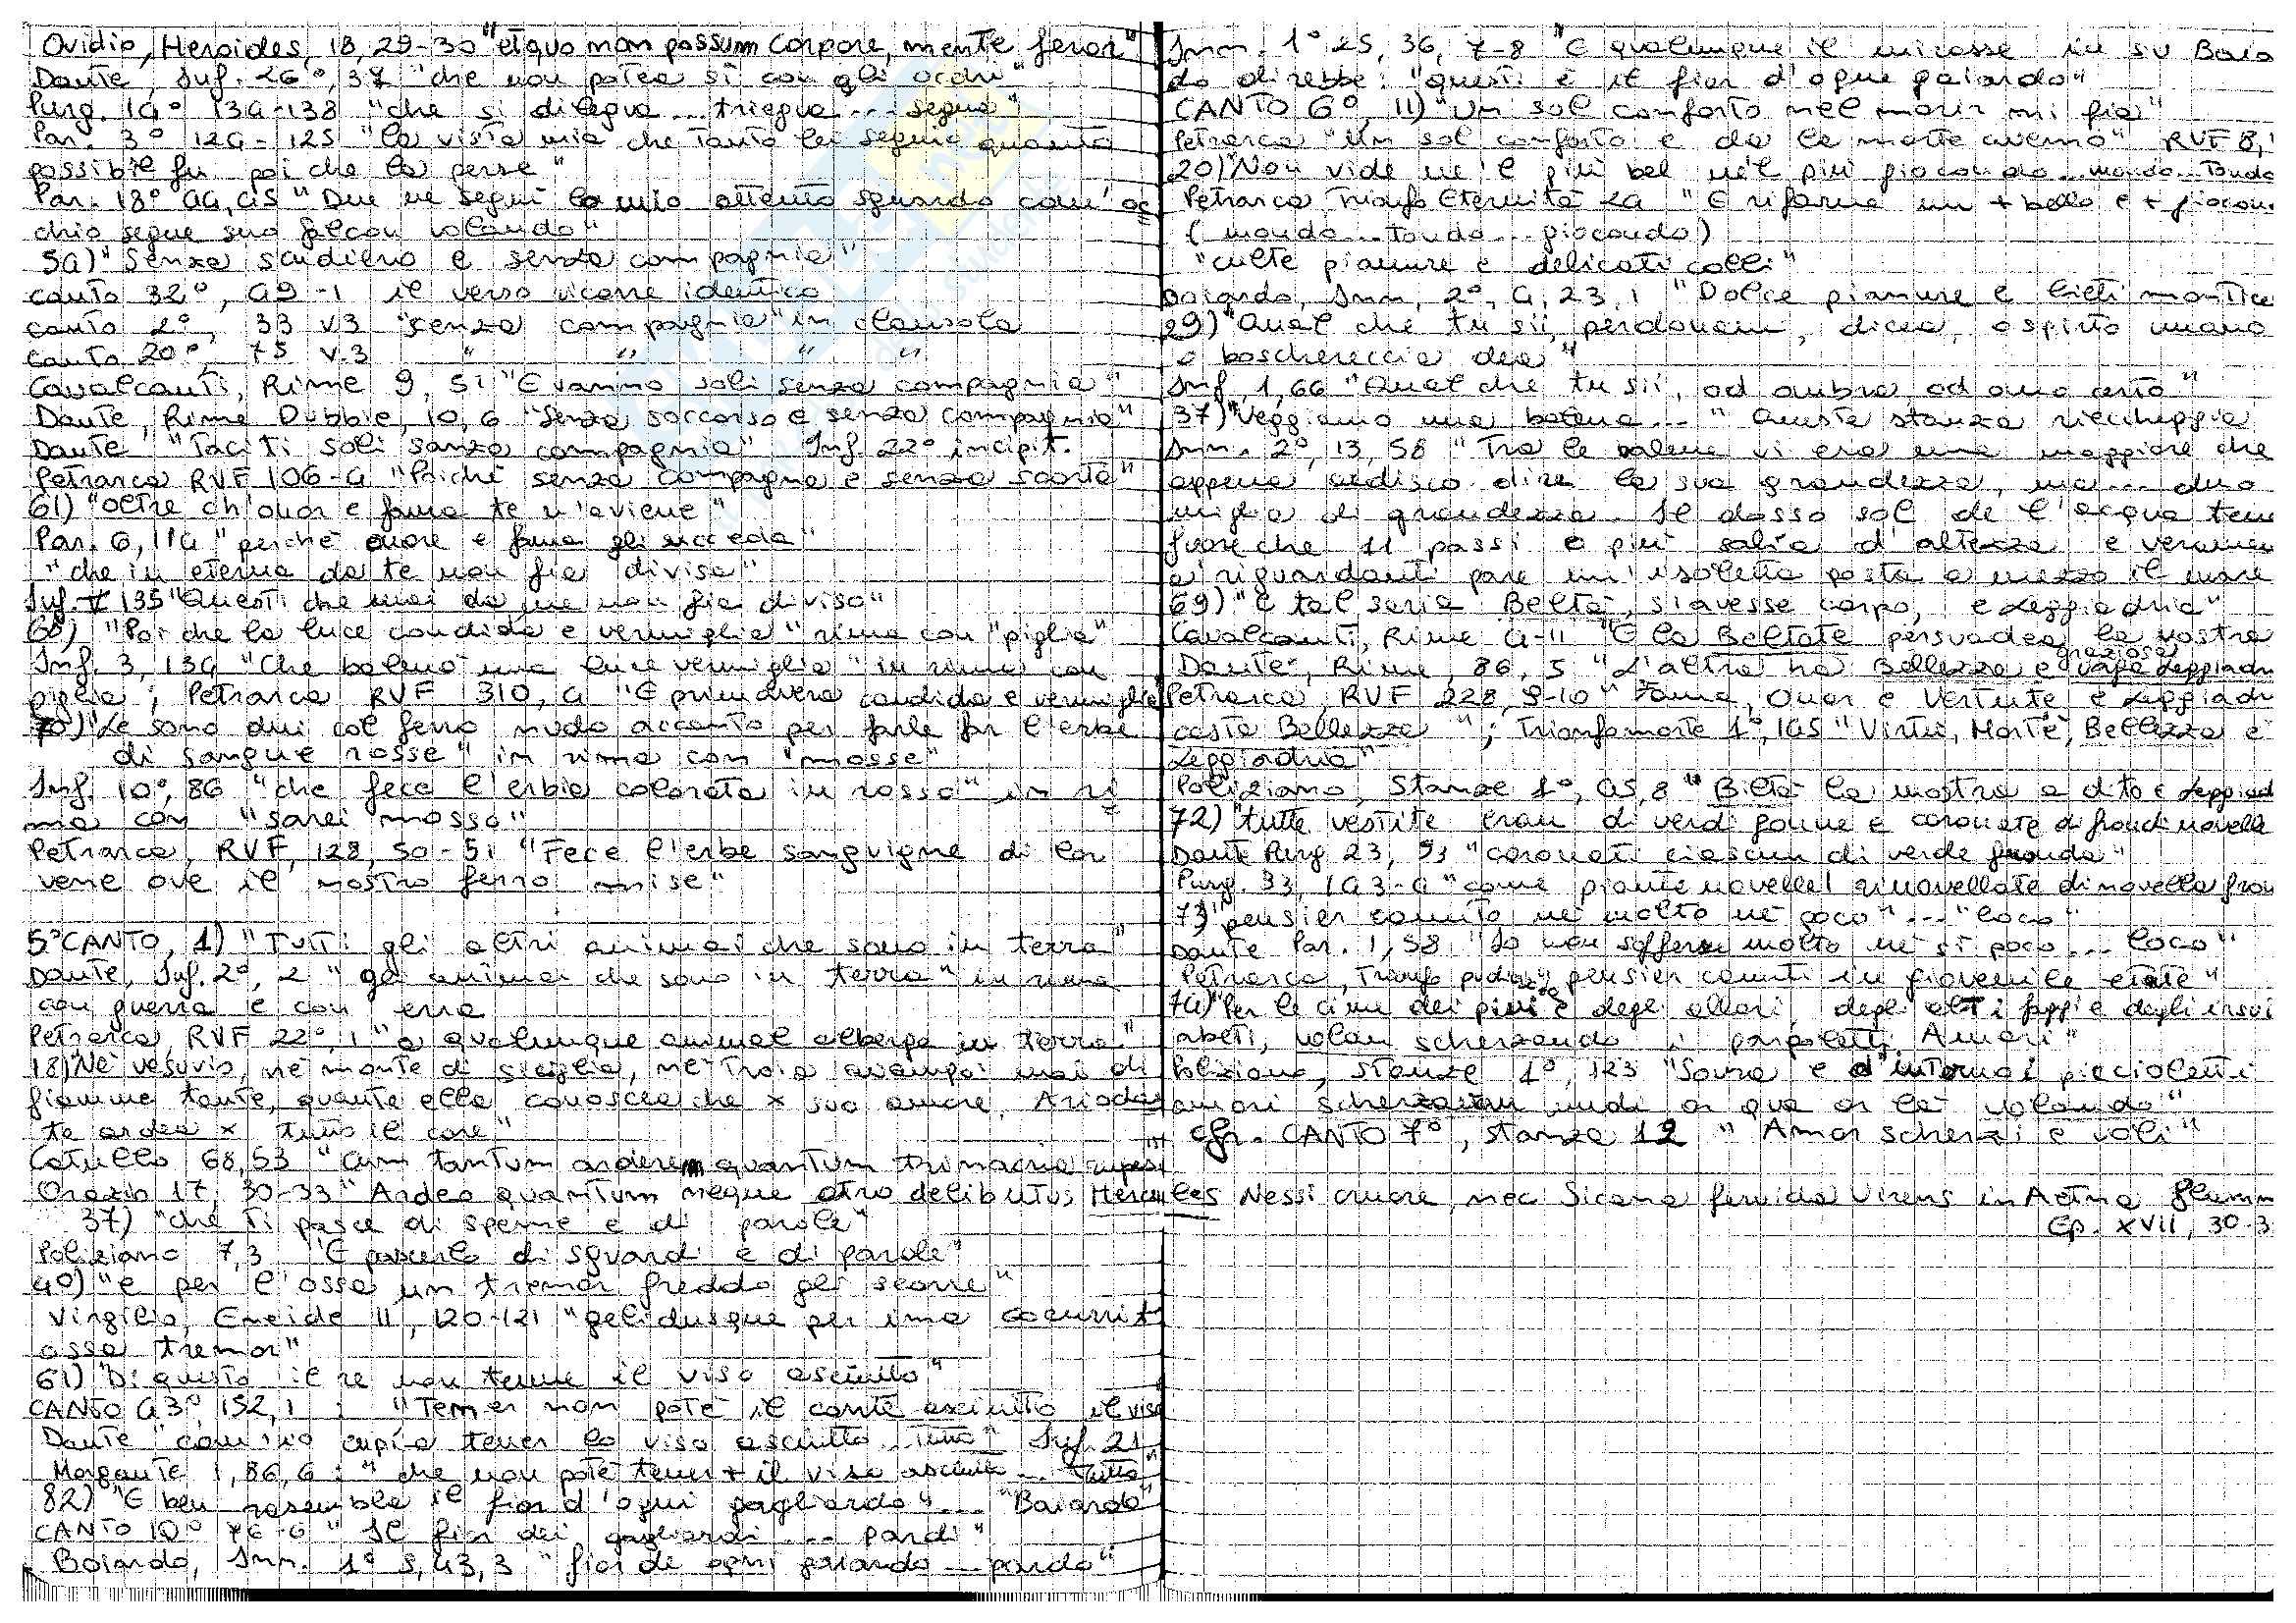 Ovidio, Heroides, 18, 29-30 "etquo non possum corpore, mente feror"
Dante, Inf. 26°, 37 "che non potea sì con gli occhi"
Purg. 14° 134-138 "che si dilegua... triegua... segua"
Par. 3° 124-125 "la vista mia che tanto lei seguio quanto
possibil fu poi che la perse"
Par. 18° 44,45 "Due ne seguì lo mio attento sguardo com'oc
chio segue suo falcon volando"
54) "Senza scudiero e senza compagnia"
canto 32°, 49-1 il verso ricorre identico
canto 2°, 33 v3 "senza compagnia" in clausola
canto 20°, 75 v.3 " " " "
Cavalcanti, Rime 9, 51 "E vanno soli senza compagnia"
Dante, Rime Dubbie, 10, 6 "Senza soccorso e senza compagnia"
Dante "Taciti soli sanza compagnia" Inf. 22° incipit.
Petrarca RVF 106-4 "Poiché senza compagna e senza scorta"
61) "Oltre ch'onor e fama te n'aviene"
Par. 6, 114 "perché onore e fama gli succeda"
"che in eterno da te non fia divisa"
Inf. V 135 "Questi che mai da me non fia diviso"
68) "Poi che la luce candida e vermiglia" rima con "piglia"
Inf. 3, 134 "Che balenò una luce vermiglia" in rima con
piglia; Petrarca RVF 310, 4 "E primavera candida e vermiglia
70) "Le sono dui col ferro nudo accanto per farle far l'erbe
di sangue rosse" in rima con "mosse"
Inf. 10°, 86 "che fece l'erbia colorata in rosso" in ri
ma con "sarei mosso"
Petrarca, RVF, 128, 50-51 "Fece l'erbe sanguigne di lor
vene ove il nostro ferro mise"
5° CANTO, 1) "Tutti gli altri animai che sono in terra"
Dante, Inf. 2°, 2 "gli animai che sono in terra" in rima
con guerra e con erra
Petrarca, RVF 22°, 1 "a qualunque animal alberga in terra"
18) "Né vesuvio, né monte di siciglia, né Troia avampò mai di
fiamme tante, quante ella conoscea che x suo amore, Arioda
te ardea x tutto il core"
Catullo 68, 53 "cum tantum arderem quantum trinacria rupes"
Orazio 17, 30-33 "Ardeo quantum neque atro delibutus Hercules Nessi cruore, nec Sicana fervida Virens in Aetna flamm
Ep. XVII, 30-3
37) "che ti pasce di speme e di parole"
Poliziano 7,3 "E pascerlo di sguardi e di parole"
40) "e per l'ossa un tremor freddo gli scorre"
Virgilio, Eneide II, 120-121 "gelidusque per ima cucurrit
ossa tremor"
61) "Di questo il re non tenne il viso asciutto"
CANTO 43°, 152, 1: "Tener non poté il conte asciutto il viso
Dante "com'io cupia tener lo viso asciutto.. Tutto" Inf. 21
Morgante 1, 86, 6: "che non poté tener+ il viso asciutto... tutto"
82) "E ben rasembla il fior d'ogni gagliardo"... "Baiardo"
CANTO 10° 76-6 "Il fior dei gagliardi... pardi"
Boiardo, Inn. 1° 5, 43, 3 "fior de ogni gaiardo... pardo"
Inn. 1° 25, 36, 7-8 "E qualunque il mirasse in su Baia
do direbbe: "questi è il fior d'ogni gaiardo"
CANTO 6°, 11) "Un sol conforto nel morir mi fia"
Petrarca "Un sol conforto è da la morte avemo" RVF 8,
20) "Non vide né 'l più bel né 'l più giocondo... mondo... Tondo
Petrarca, Trionfo Eternità 24 "E rifarne un + bello e + giocon
(mondo... tondo... giocondo)
"culte pianure e delicati colli"
Boiardo, Inn, 2°, 4, 23, 1 "Dolce pianure e lieti montice
29) "Qual che tu sii, perdonami, dicea, o spirto umano
o boschereccia dea"
Inf. 1, 66 "Qual che tu sii, od ombra od omo certo"
37) "Veggiamo una balena..." Questa stanza riecheggia
Inn. 2°, 13, 58 "Tra le balene vi era una maggiore che
appena ardisco dire la sua grandezza, ma... duo
miglia di grandezza. Il dosso sol de l'acqua tene
fuore che 11 passi o più salia d'altezza e veramen
a'riguardanti pare un'isoletta posta a mezzo il mare
69) "E tal saria Beltà, s'avesse corpo, e Leggiadria"
Cavalcanti, Rime 4-11 "E la Beltate persuadea la vostra
Dante, Rime, 86, 5 "L'altra ha Bellezza e vaga graziosa Leggiadri
Petrarca, RVF 228, 9-10 "Fama, Onor e Vertute e Leggiadri
casta Bellezza"; Trionfo morte 1°, 145 "Virtù, Morte, Bellezza e
Leggiadria"
Poliziano, Stanze 1°, 45, 8 "Biltà la mostra a dito e Leggiad
72) "tutte vestite eran di verdi gonne e coronate di frondi novelle
Dante Purg 23, 93 "coronati ciascun di verde fronda"
Purg. 33, 143-4 "come piante novelle rinovellate di novella fron
73) "pensier canuto né molto né poco"... "loco"
Dante Par. 1, 58 "Io non soffersi molto né sì poco... loco"
Petrarca, Trionfo pudicizia "pensier canuti in giovenile etate"
74) "Per le cime dei pini e degli allori, degli alti faggi e degli irsuti
abeti, volan scherzando i pargoletti Amori"
Poliziano, Stanze 1°, 123 "Sovra e d'intorno i piccioletti
amori scherzavan nudi or qua or là volando"
cfr. CANTO 7°, stanza 12 "Amor scherzi e voli"